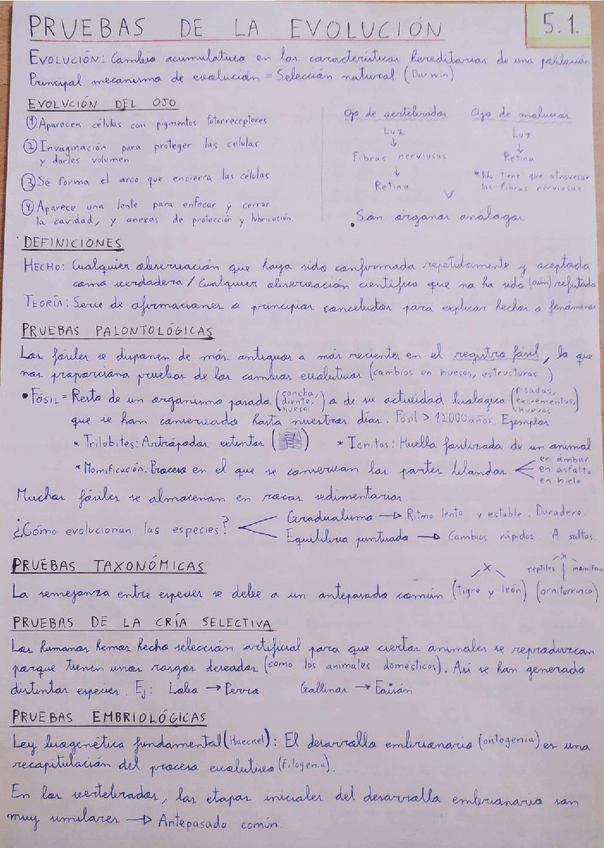 PRUEBAS DE LA EVOLUCIÓN
5.1.
EVOLUCIÓN: Cambio acumulativo en las características hereditarias de una población
Principal mecanismo de evolución = Selección natural (Darwin)
EVOLUCIÓN DEL OJO
① Aparecen células con pigmentos fotorreceptores
② Invaginación para proteger las células
y darles volumen
③ Se forma el arco que encierra las células
④ Aparece una lente para enfocar y cerrar
la cavidad, y anexos de protección y lubricación
Ojo de vertebrados
Luz
↓
Fibras nerviosas
↓
Retina
Ojo de moluscos
Luz
↓
Retina
* No tiene que atravesar
las fibras nerviosas
• Son órganos análogos
DEFINICIONES
HECHO: Cualquier observación que haya sido confirmada repetidamente y aceptada
como verdadera / Cualquier observación científica que no ha sido (aún) refutada
TEORÍA: Serie de afirmaciones o principios concebidos para explicar hechos o fenómenos
PRUEBAS PALONTOLÓGICAS
Los fósiles se disponen de más antiguos a más recientes en el registro fósil, lo que
nos proporciona pruebas de los cambios evolutivos (cambios en huesos, estructuras)
• FÓSIL = Resto de un organismo pasado (concha, diente, hueso) o de su actividad biológica (pisadas, excrementos, huevos)
que se han conservado hasta nuestros días. Fósil > 12000 años. Ejemplos:
* Trilobites: Artrópodos extintos
* Icnitas: Huella fosilizada de un animal
* Momificación. Proceso en el que se conservan las partes blandas
en ámbar
en asfalto
en hielo
Muchos fósiles se almacenan en rocas sedimentarias.
¿Cómo evolucionan las especies?
Gradualismo → Ritmo lento y estable. Duradero.
Equilibrio puntuado → Cambios rápidos. A saltos.
PRUEBAS TAXONÓMICAS
reptiles mamíferos
La semejanza entre especies se debe a un antepasado común (tigre y león) (ornitorrinco)
PRUEBAS DE LA CRÍA SELECTIVA
Los humanos hemos hecho selección artificial para que ciertos animales se reproduzcan
porque tienen unos rasgos deseados (como los animales domésticos). Así se han generado
distintas especies. Ej: Lobo → Perro Gallinas → Faisán
PRUEBAS EMBRIOLÓGICAS
Ley biogenética fundamental (Haeckel): El desarrollo embrionario (ontogenia) es una
recapitulación del proceso evolutivo (filogenia).
En los vertebrados, las etapas iniciales del desarrollo embrionario son
muy similares → Antepasado común